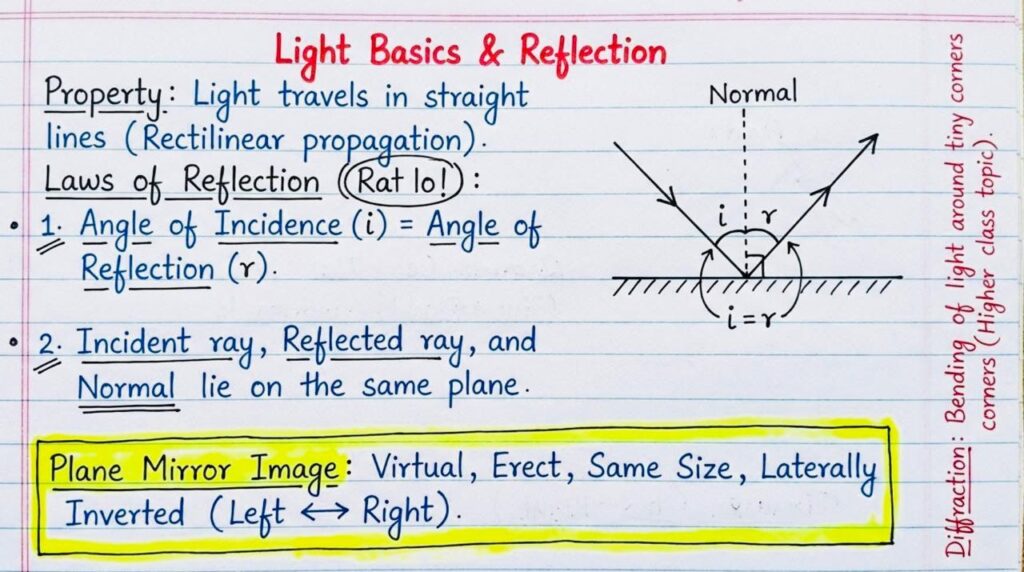 Light Basics & Reflection
Property: Light travels in straight
lines (Rectilinear propagation).
Laws of Reflection (Rat lo!):
• 1. Angle of Incidence (i) = Angle of
Reflection (r).
• 2. Incident ray, Reflected ray, and
Normal lie on the same plane.
Normal
i r
i = r
Plane Mirror Image: Virtual, Erect, Same Size, Laterally
Inverted (Left ↔ Right).
Diffraction: Bending of light around tiny corners
corners (Higher class topic).